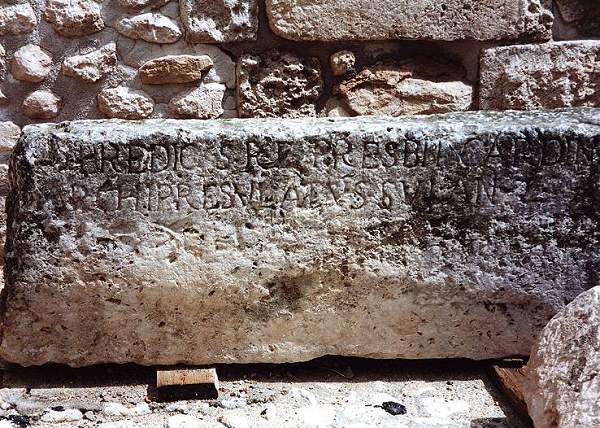 PREDIC S R E PRESBIT CARDIN
ARCHIPRESVLATVS SVI AN